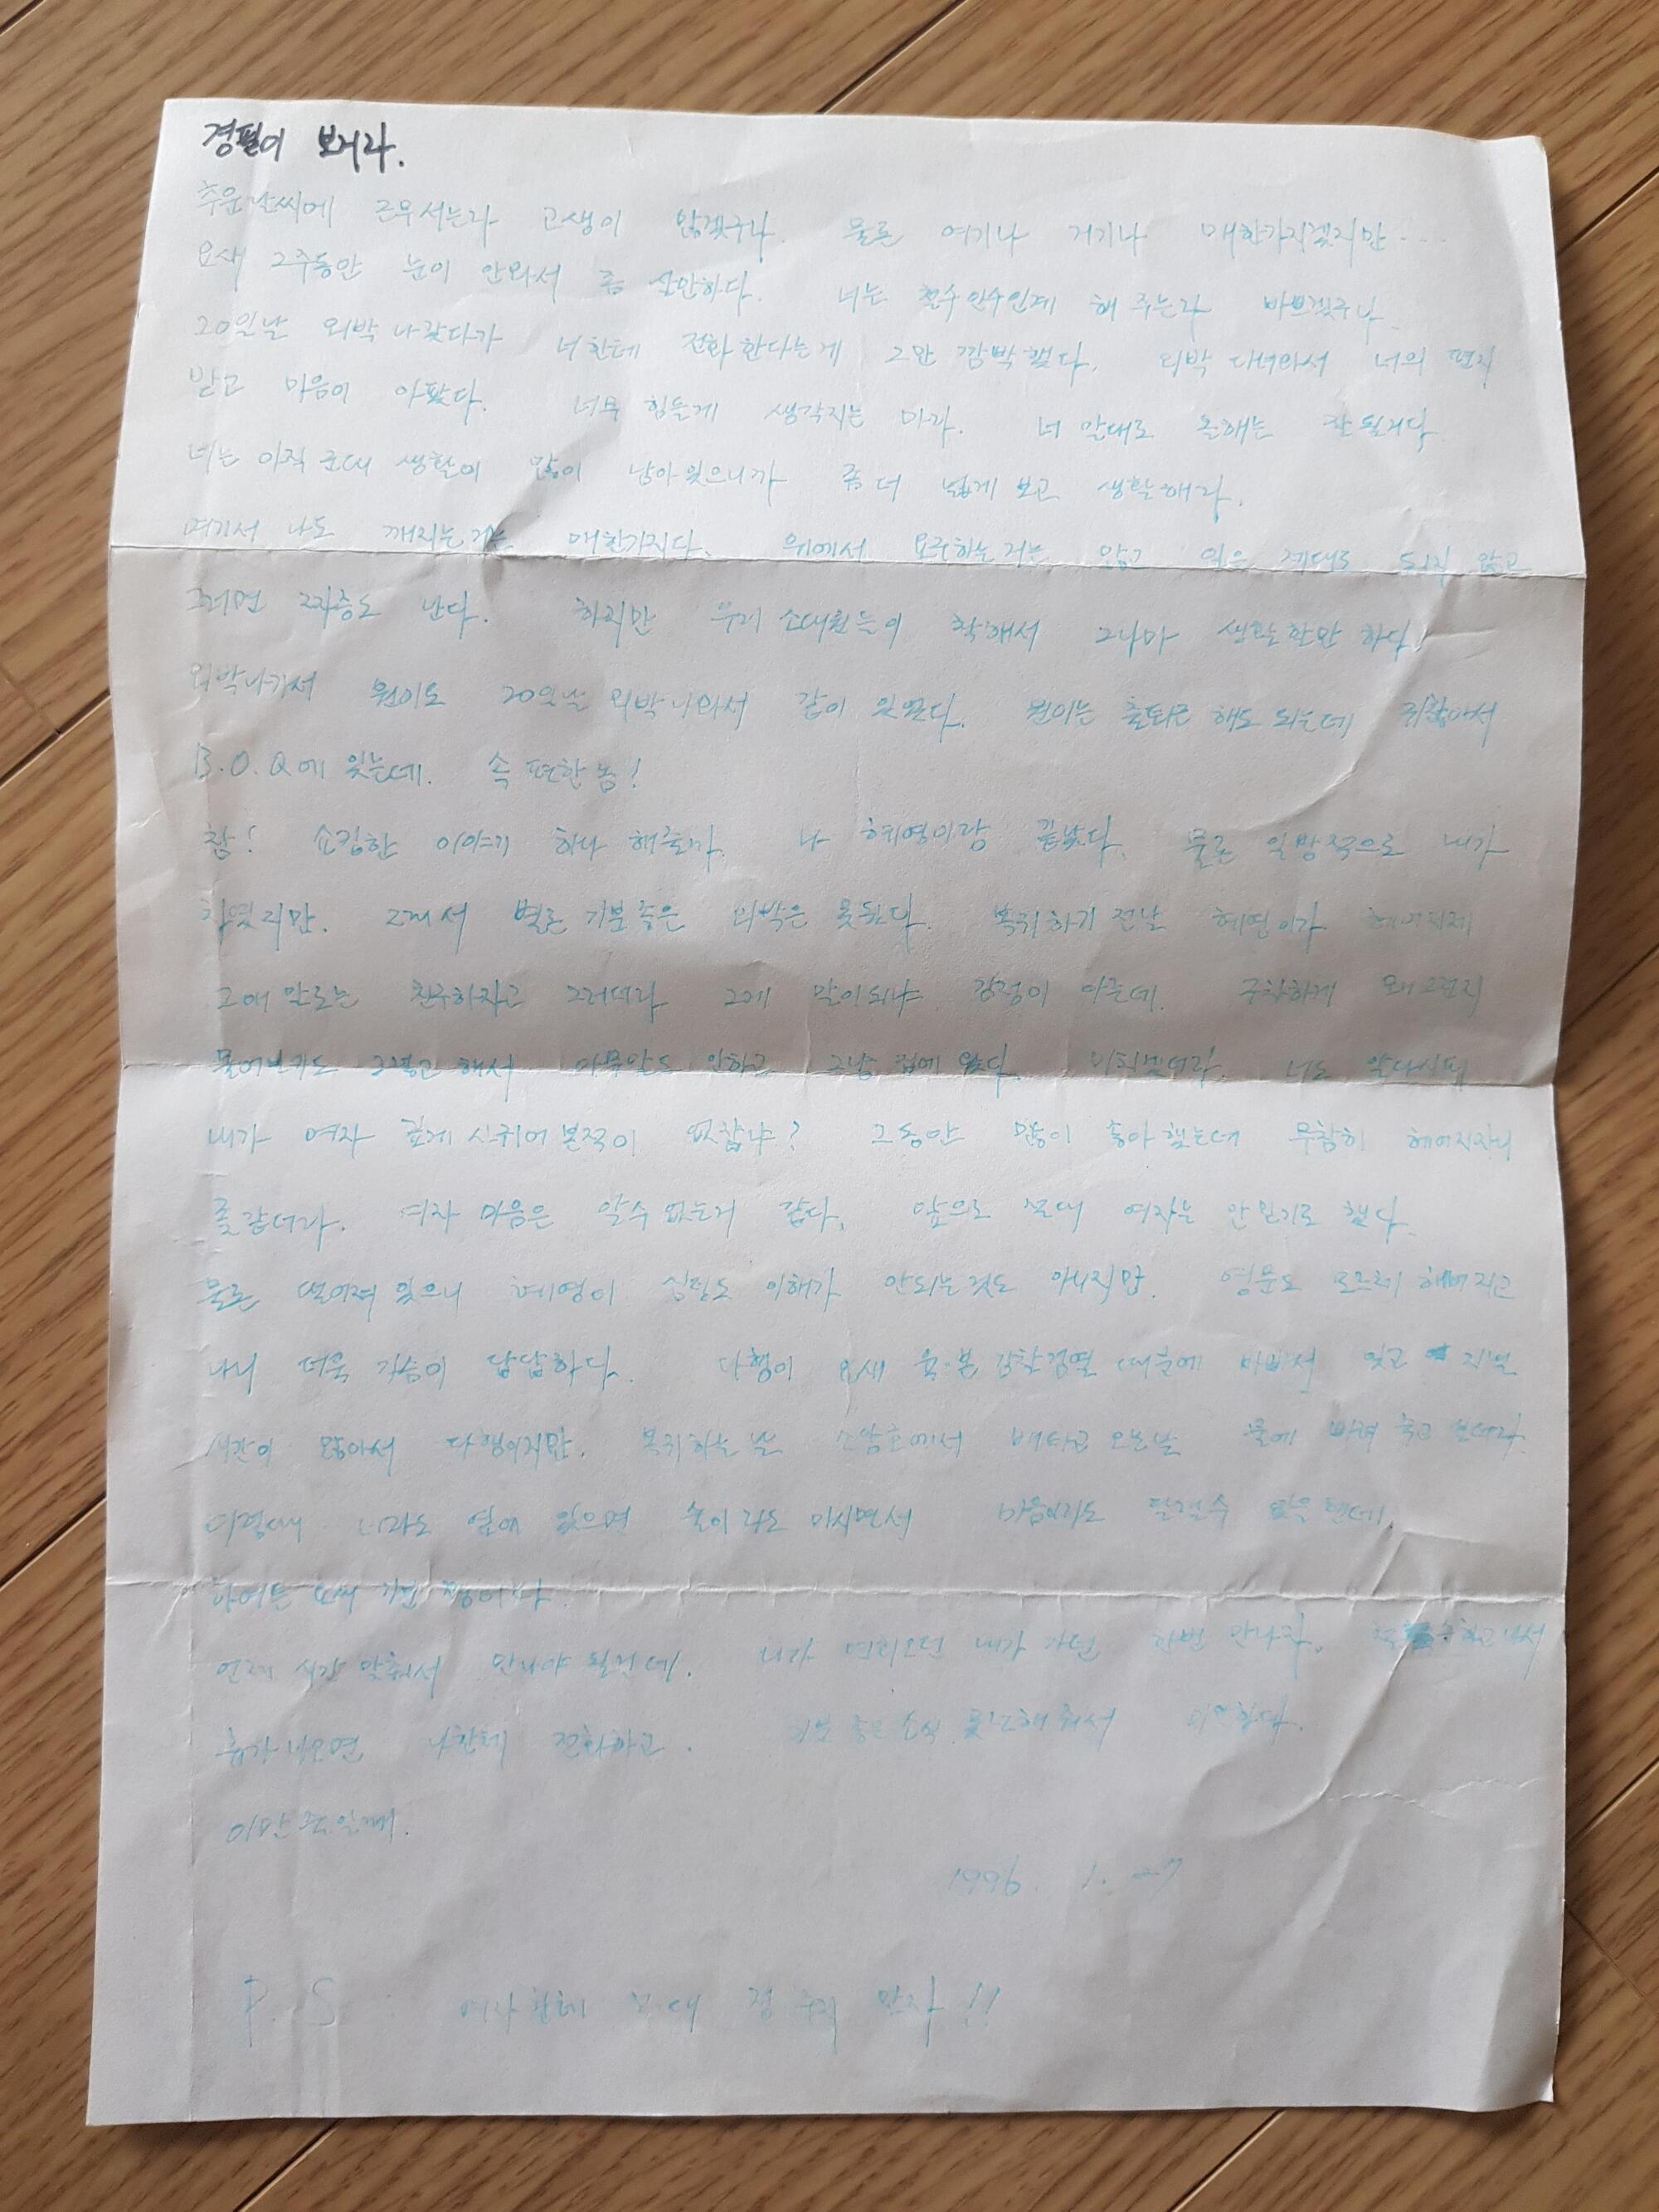 경필이 보거라.
추운날씨에 근무서느라 고생이 많겠구나. 물론 여기나 거기나 매한가지겠지만....
요새 2주동안 눈이 안와서 좀 살만하다. 너는 인수인계 해 주느라 바쁘겠구나.
20일날 외박 나갔다가 너한테 전화 한다는게 그만 깜박했다. 외박 다녀와서 너의 편지
받고 마음이 아팠다. 너무 힘들게 생각지는 마라. 너 말대로 올해는 잘될거다.
너는 아직 군대 생활이 많이 남아있으니까 좀 더 넓게 보고 생활해라.
여기서 나도 깨지는거는 매한가지다. 위에서 요구하는 거는 많고 일은 제대로 되지 않고
그러면 짜증도 난다. 하지만 우리 소대원들이 착해서 그나마 생활할만 하다.
외박나가서 원이도 20일날 외박나와서 같이 있었다. 원이는 출퇴근 해도 되는데 귀찮아서
B.O.Q에 있는데. 속 편한 놈!
참! 쇼킹한 이야기 하나 해줄까. 나 혜영이랑 끝났다. 물론 일방적으로 내가
차였지만. 그래서 별로 기분좋은 외박은 못됐다. 복귀하기 전날 혜영이가 헤어지제
그애 말로는 친구하자고 그러더라 그게 말이되냐 감정이 아픈데. 구차하게 왜그런지
물어보기도 그렇고 해서 아무말도 안하고 그냥 집에 왔다. 미치겠더라. 너도 알다시피
내가 여자 깊게 사귀어 본적이 없잖냐? 그동안 많이 좋아했는데 무참히 헤어지자니
좆같더라. 여자 마음은 알수 없는거 같다. 앞으로 절대 여자는 안 믿기로 했다.
물론 떨어져 있으니 혜영이 심정도 이해가 안되는것도 아니지만. 영문도 모르게 헤어지고
나니 더욱 가슴이 답답하다. 다행이 요새 육.본 감찰검열 때문에 바빠서 잊고 지낼
시간이 많아서 다행이지만. 복귀하는 날 소양호에서 배타고 오는날 물에 빠져 죽고 싶더라.
이럴때 너라도 옆에 있으면 술이라도 마시면서 마음이라도 달랠수 있을텐데.
하여튼 요새 기분 꽝이다.
언제 시간 맞춰서 만나야 될건데. 니가 면회오던 내가 가던 한번 만나자. 하고나서
휴가 나오면 나한테 전화하고. 기분 좋은 소식 못전해 줘서 미안하다.
이만 줄일께.
1996. 1. 27
P.S : 여자한테 절대 정 주지 말자!!